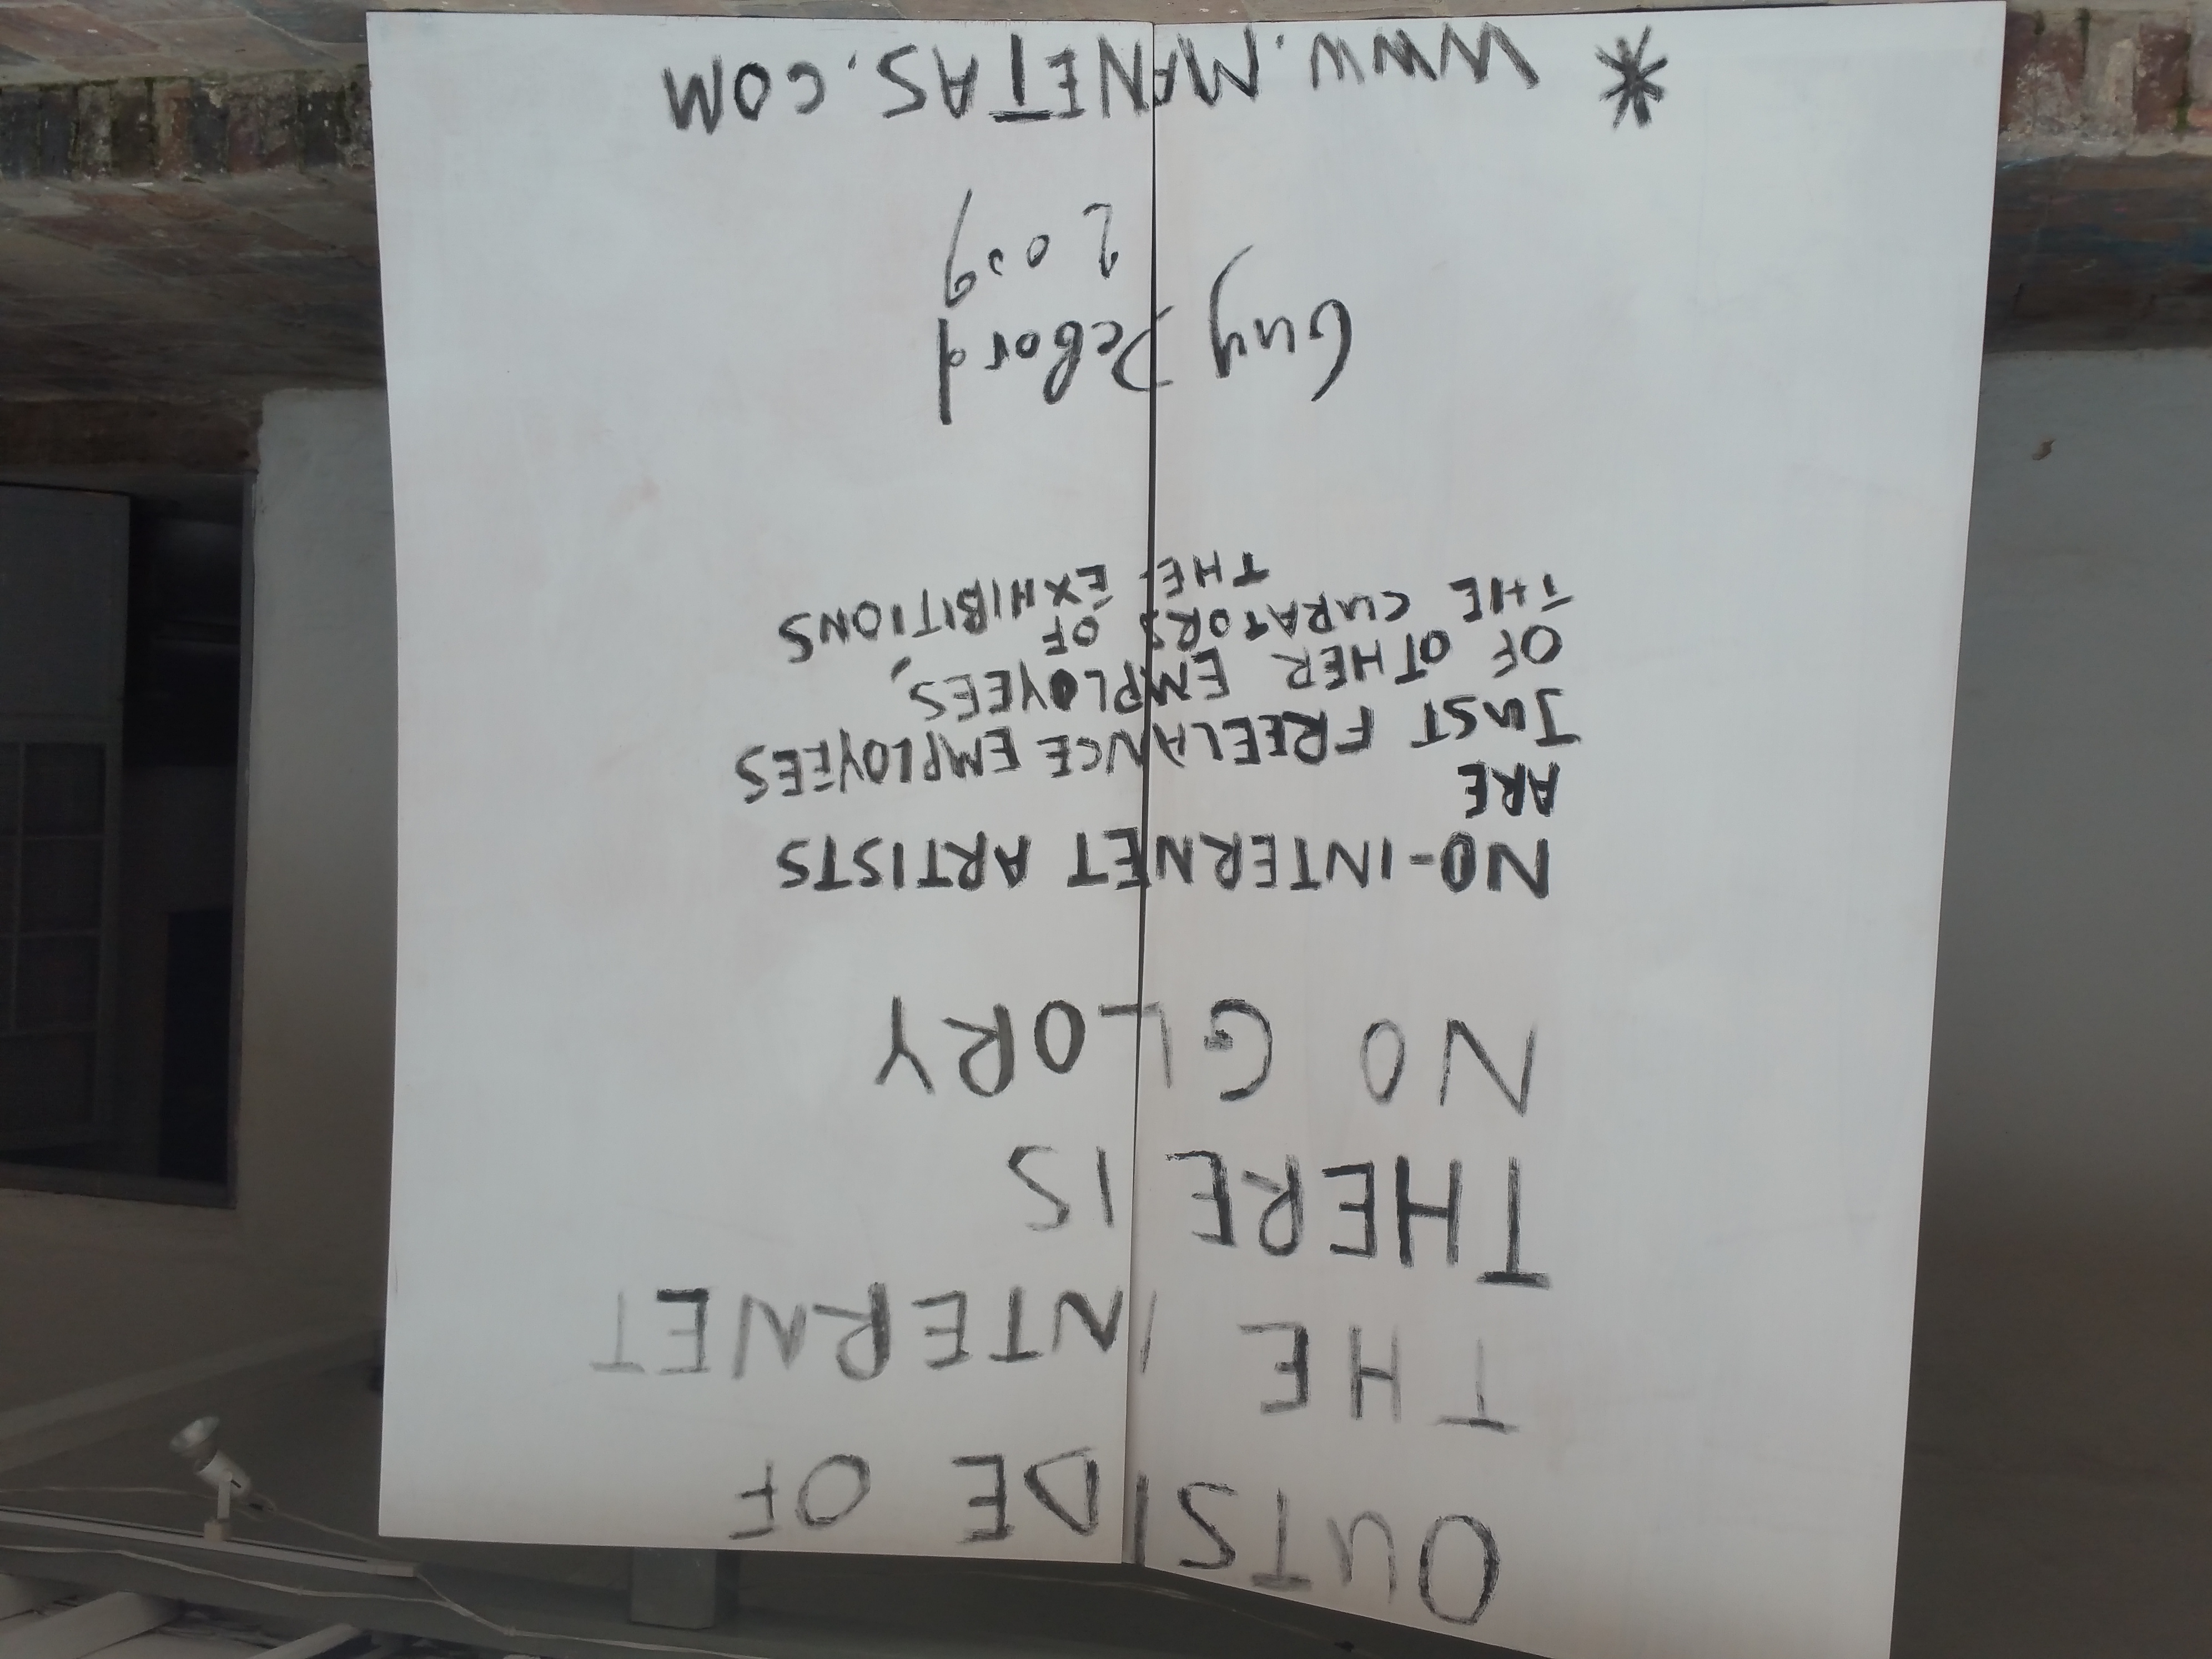 OUTSIDE OF
THE INTERNET
THERE IS
NO GLORY
NO-INTERNET ARTISTS
ARE
JUST FREELANCE EMPLOYEES
OF OTHER EMPLOYEES,
THE CURATORS OF
THE EXHIBITIONS
Guy Debord
2009
* WWW.MANETAS.COM